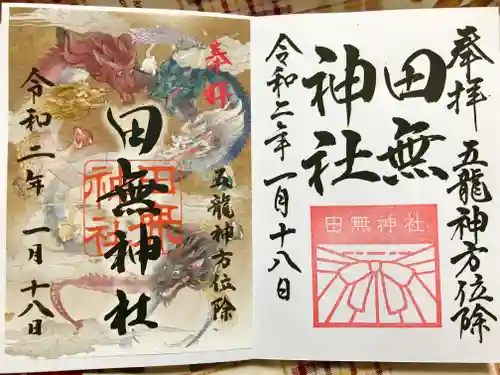 奉拝
五龍神方位除
田無神社
田無
神社
令和二年
一月
十八日
奉拝
五龍神方位除
田無
神社
田無神社
令和二年
一月十八日